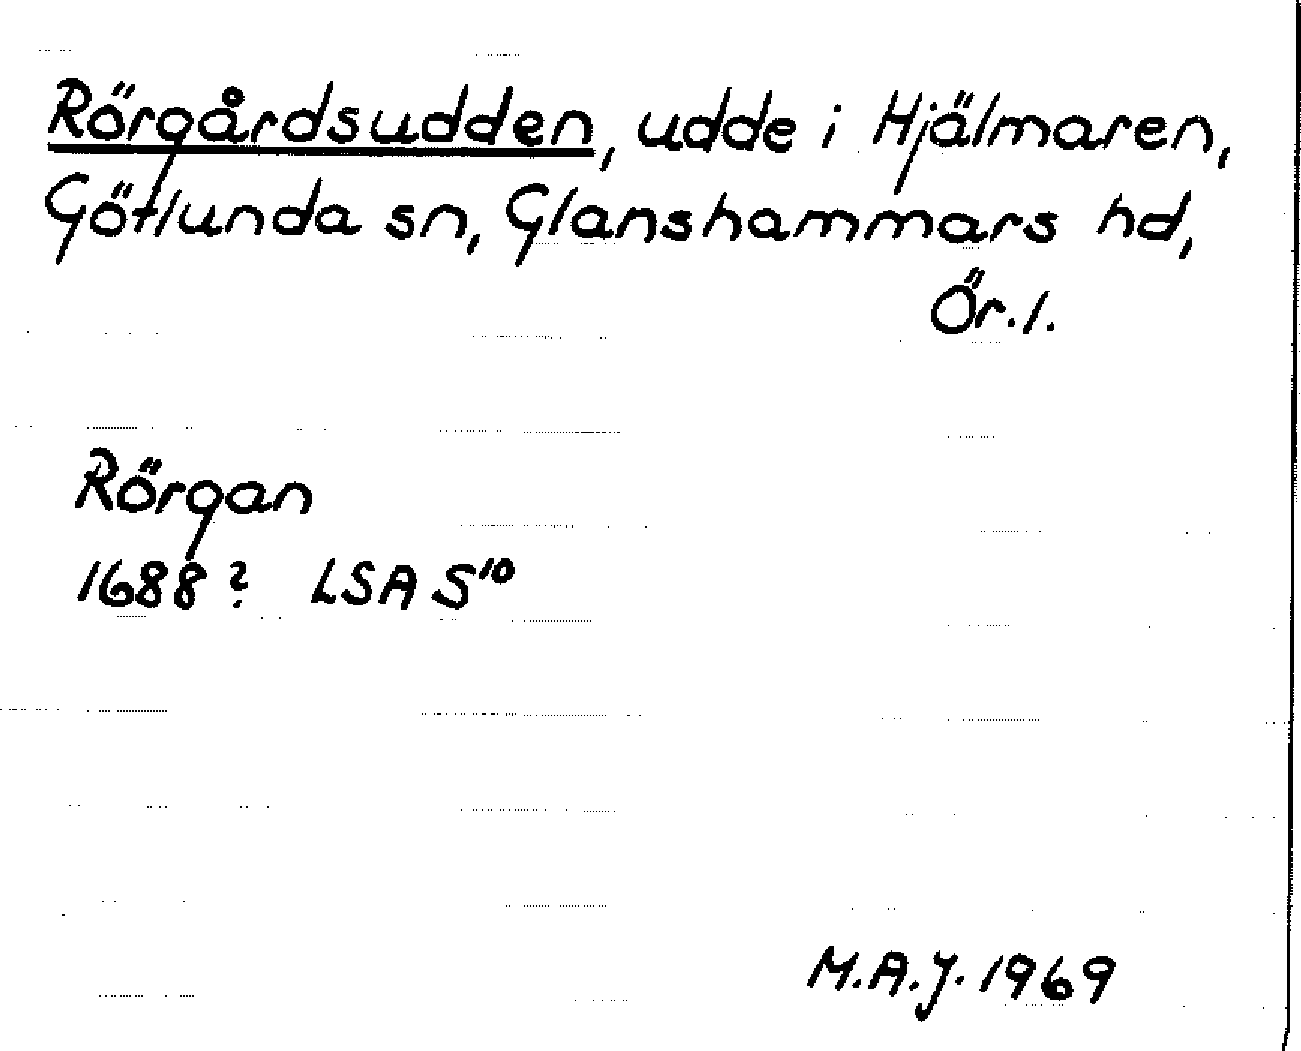 Rörgårdsudden, udde i Hjälmaren,
Götlunda sn, Glanshammars hd,
Ör. l.
Rörgan
1688? LSA S¹⁰
M.A.J. 1969